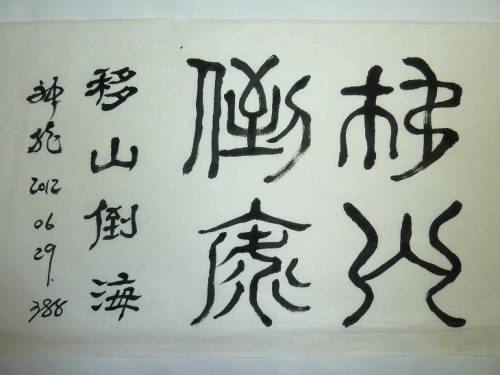 移山
倒海
移山倒海
神龍 2012 06 29. 388